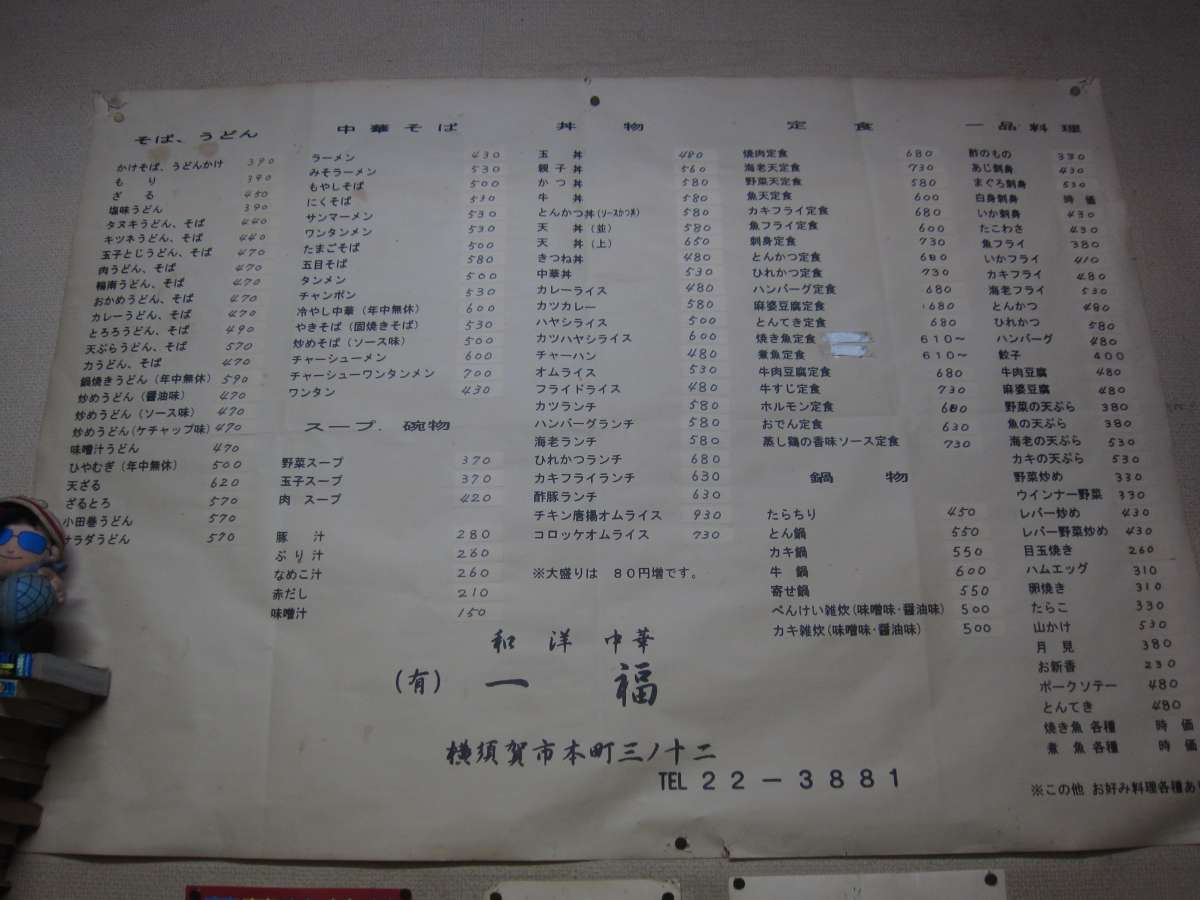 そば、うどん
かけそば、うどんかけ 390
もり 390
ざる 450
塩味うどん 390
タヌキうどん、そば 440
キツネうどん、そば 440
玉子とじうどん、そば 470
肉うどん、そば 470
鴨南うどん、そば 470
おかめうどん、そば 470
カレーうどん、そば 470
とろろうどん、そば 490
天ぷらうどん、そば 570
力うどん、そば 470
鍋焼きうどん（年中無休） 590
炒めうどん（醤油味） 470
炒めうどん（ソース味） 470
炒めうどん（ケチャップ味） 470
味噌汁うどん 470
ひやむぎ（年中無休） 500
天ざる 620
ざるとろ 570
小田巻うどん 570
サラダうどん 570
中華そば
ラーメン 430
みそラーメン 530
もやしそば 500
にくそば 530
サンマーメン 530
ワンタンメン 530
たまごそば 500
五目そば 580
タンメン 500
チャンポン 530
冷やし中華（年中無休） 600
やきそば（固焼きそば） 530
炒めそば（ソース味） 500
チャーシューメン 600
チャーシューワンタンメン 700
ワンタン 430
スープ．碗物
野菜スープ 370
玉子スープ 370
肉 スープ 420
豚 汁 280
ぶり汁 260
なめこ汁 260
赤だし 210
味噌汁 150
丼 物
玉 丼 480
親子丼 560
かつ丼 580
牛 丼 580
とんかつ丼（ソースかつ丼） 580
天 丼（並） 580
天 丼（上） 650
きつね丼 480
中華丼 530
カレーライス 480
カツカレー 580
ハヤシライス 500
カツハヤシライス 600
チャーハン 480
オムライス 530
フライドライス 480
カツランチ 580
ハンバーグランチ 580
海老ランチ 580
ひれかつランチ 680
カキフライランチ 630
酢豚ランチ 630
チキン唐揚オムライス 930
コロッケオムライス 730
※大盛りは ８０円増です。
定 食
焼肉定食 680
海老天定食 730
野菜天定食 580
魚天定食 600
カキフライ定食 680
魚フライ定食 600
刺身定食 730
とんかつ定食 680
ひれかつ定食 730
ハンバーグ定食 680
麻婆豆腐定食 680
とんてき定食 680
焼き魚定食 610～
煮魚定食 610～
牛肉豆腐定食 680
牛すじ定食 730
ホルモン定食 680
おでん定食 630
蒸し鶏の香味ソース定食 730
鍋 物
たらちり 450
とん鍋 550
カキ鍋 550
牛 鍋 600
寄せ鍋 550
べんけい雑炊（味噌味・醤油味） 500
カキ雑炊（味噌味・醤油味） 500
一品料理
酢のもの 330
あじ刺身 430
まぐろ刺身 530
白身刺身 時価
いか刺身 430
たこわさ 430
魚フライ 380
いかフライ 410
カキフライ 480
海老フライ 530
とんかつ 480
ひれかつ 580
ハンバーグ 480
餃子 400
牛肉豆腐 480
麻婆豆腐 480
野菜の天ぷら 380
魚の天ぷら 380
海老の天ぷら 530
カキの天ぷら 530
野菜炒め 330
ウインナー野菜 330
レバー炒め 430
レバー野菜炒め 430
目玉焼き 260
ハムエッグ 310
卵焼き 310
たらこ 330
山かけ 530
月 見 380
お新香 230
ポークソテー 480
とんてき 480
焼き魚 各種 時価
煮 魚 各種 時価
※この他 お好み料理各種あり
和 洋 中華
（有） 一 福
横須賀市本町三ノ十二
TEL ２２－３８８１